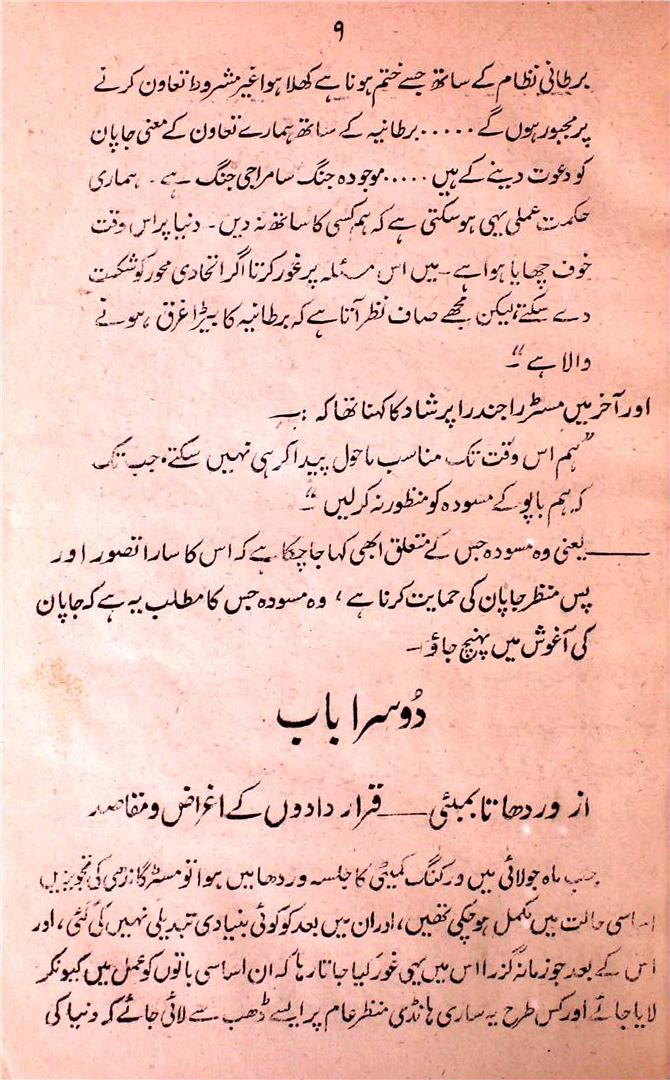 ۹
برطانی نظام کے ساتھ جسے ختم ہونا ہے کھلا ہوا غیر مشروط تعاون کرنے
پر مجبور ہوں گے ..... برطانیہ کے ساتھ ہمارے تعاون کے معنی جاپان
کو دعوت دینے کے ہیں ..... موجودہ جنگ سامراجی جنگ ہے۔ ہماری
حکمت عملی یہی ہو سکتی ہے کہ ہم کسی کا ساتھ نہ دیں۔ دنیا پر اس وقت
خوف چھایا ہوا ہے۔ میں اس مسئلہ پر غور کرتا اگر اتحادی محور کو شکست
دے سکتے، لیکن مجھے صاف نظر آتا ہے کہ برطانیہ کا بیڑا غرق ہونے
والا ہے"۔
اور آخر میں مسٹر راجندرا پرشاد کا کہنا تھا کہ :۔
"ہم اس وقت تک مناسب ماحول پیدا کر ہی نہیں سکتے، جب تک
کہ ہم باپو کے مسودہ کو منظور نہ کر لیں"۔
——یعنی وہ مسودہ جس کے متعلق ابھی کہا جا چکا ہے کہ اس کا سارا تصور اور
پس منظر جاپان کی حمایت کرنا ہے، وہ مسودہ جس کا مطلب یہ ہے کہ جاپان
کی آغوش میں پہنچ جاؤ۔
دُوسرا باب
از وردھا تا بمبئی——قرار دادوں کے اغراض و مقاصد
جب ماہ جولائی میں ورکنگ کمیٹی کا جلسہ وردھا میں ہوا تو مسٹر گاندھی کی تجویزیں
اساسی حالت میں مکمل ہو چکی تھیں، اور ان میں بعد کو کوئی بنیادی تبدیلی نہیں کی گئی، اور
اس کے بعد جو زمانہ گزرا اس میں یہی غور کیا جاتا رہا کہ ان اساسی باتوں کو عمل میں کیونکر
لایا جائے اور کس طرح یہ ساری ہانڈی منظر عام پر ایسے ڈھب سے لائی جائے کہ دنیا کی